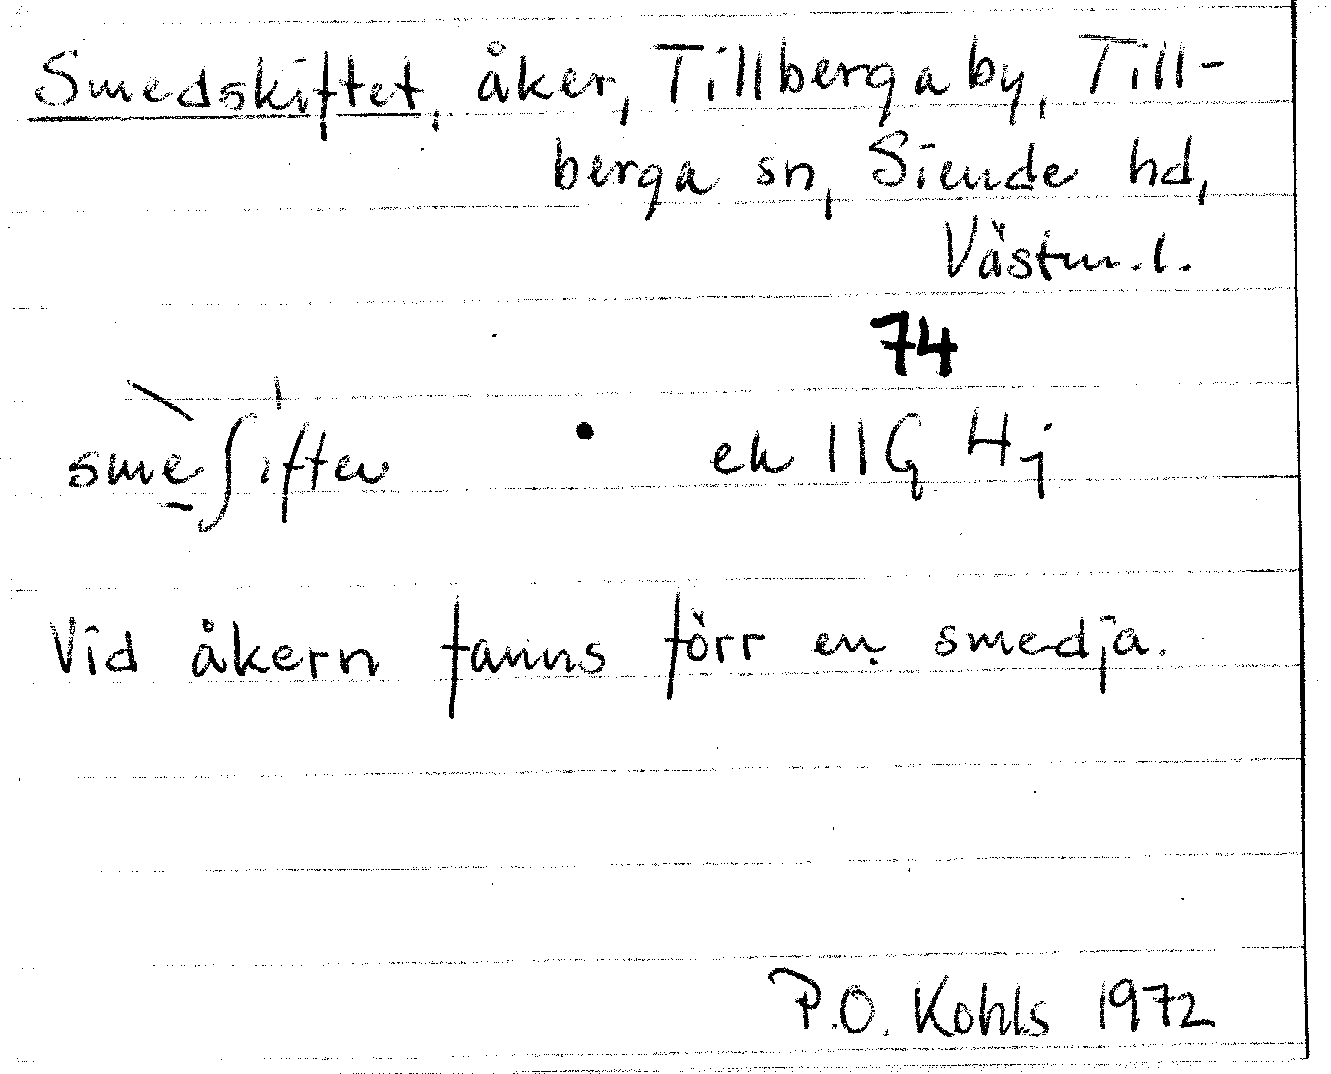 Smedskiftet, åker, Tillberga by, Till-
berga sn, Siende hd,
Västm.l.
74
sme ʃiften • ek 11G 4j
Vid åkern fanns förr en smedja.
P.O. Kohls 1972